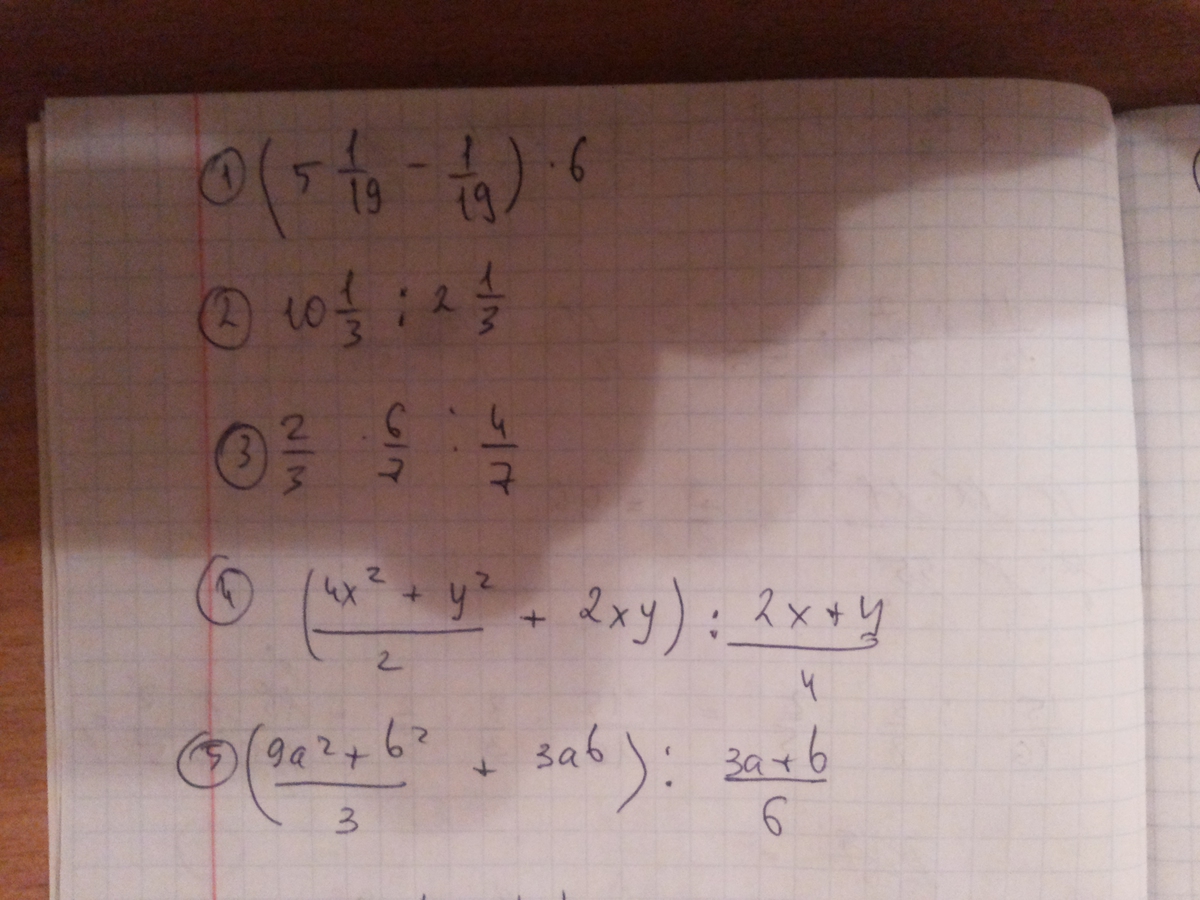 ① (5 1/19 - 1/19) · 6
② 10 1/3 : 2 1/3
③ 2/3 · 6/7 : 4/7
④ ((4x² + y²)/2 + 2xy) : (2x + y)/4
⑤ ((9a² + b²)/3 + 3ab) : (3a + b)/6